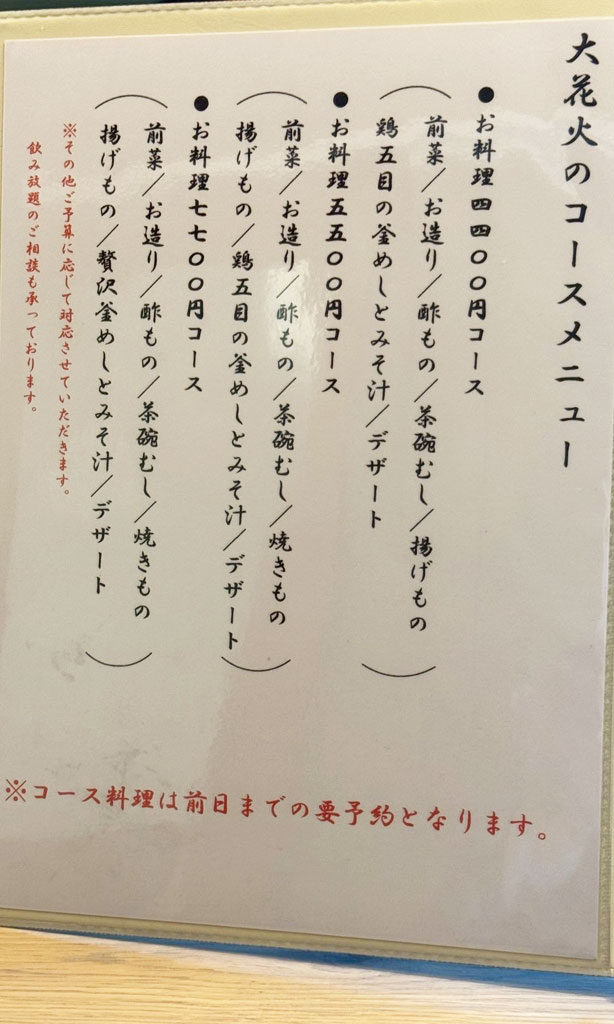 大花火のコースメニュー
●お料理四四〇〇円コース
前菜／お造り／酢もの／茶碗むし／揚げもの
鶏五目の釜めしとみそ汁／デザート
●お料理五五〇〇円コース
前菜／お造り／酢もの／茶碗むし／焼きもの
揚げもの／鶏五目の釜めしとみそ汁／デザート
●お料理七七〇〇円コース
前菜／お造り／酢もの／茶碗むし／焼きもの
揚げもの／贅沢釜めしとみそ汁／デザート
※その他ご予算に応じて対応させていただきます。
飲み放題のご相談も承っております。
※コース料理は前日までの要予約となります。